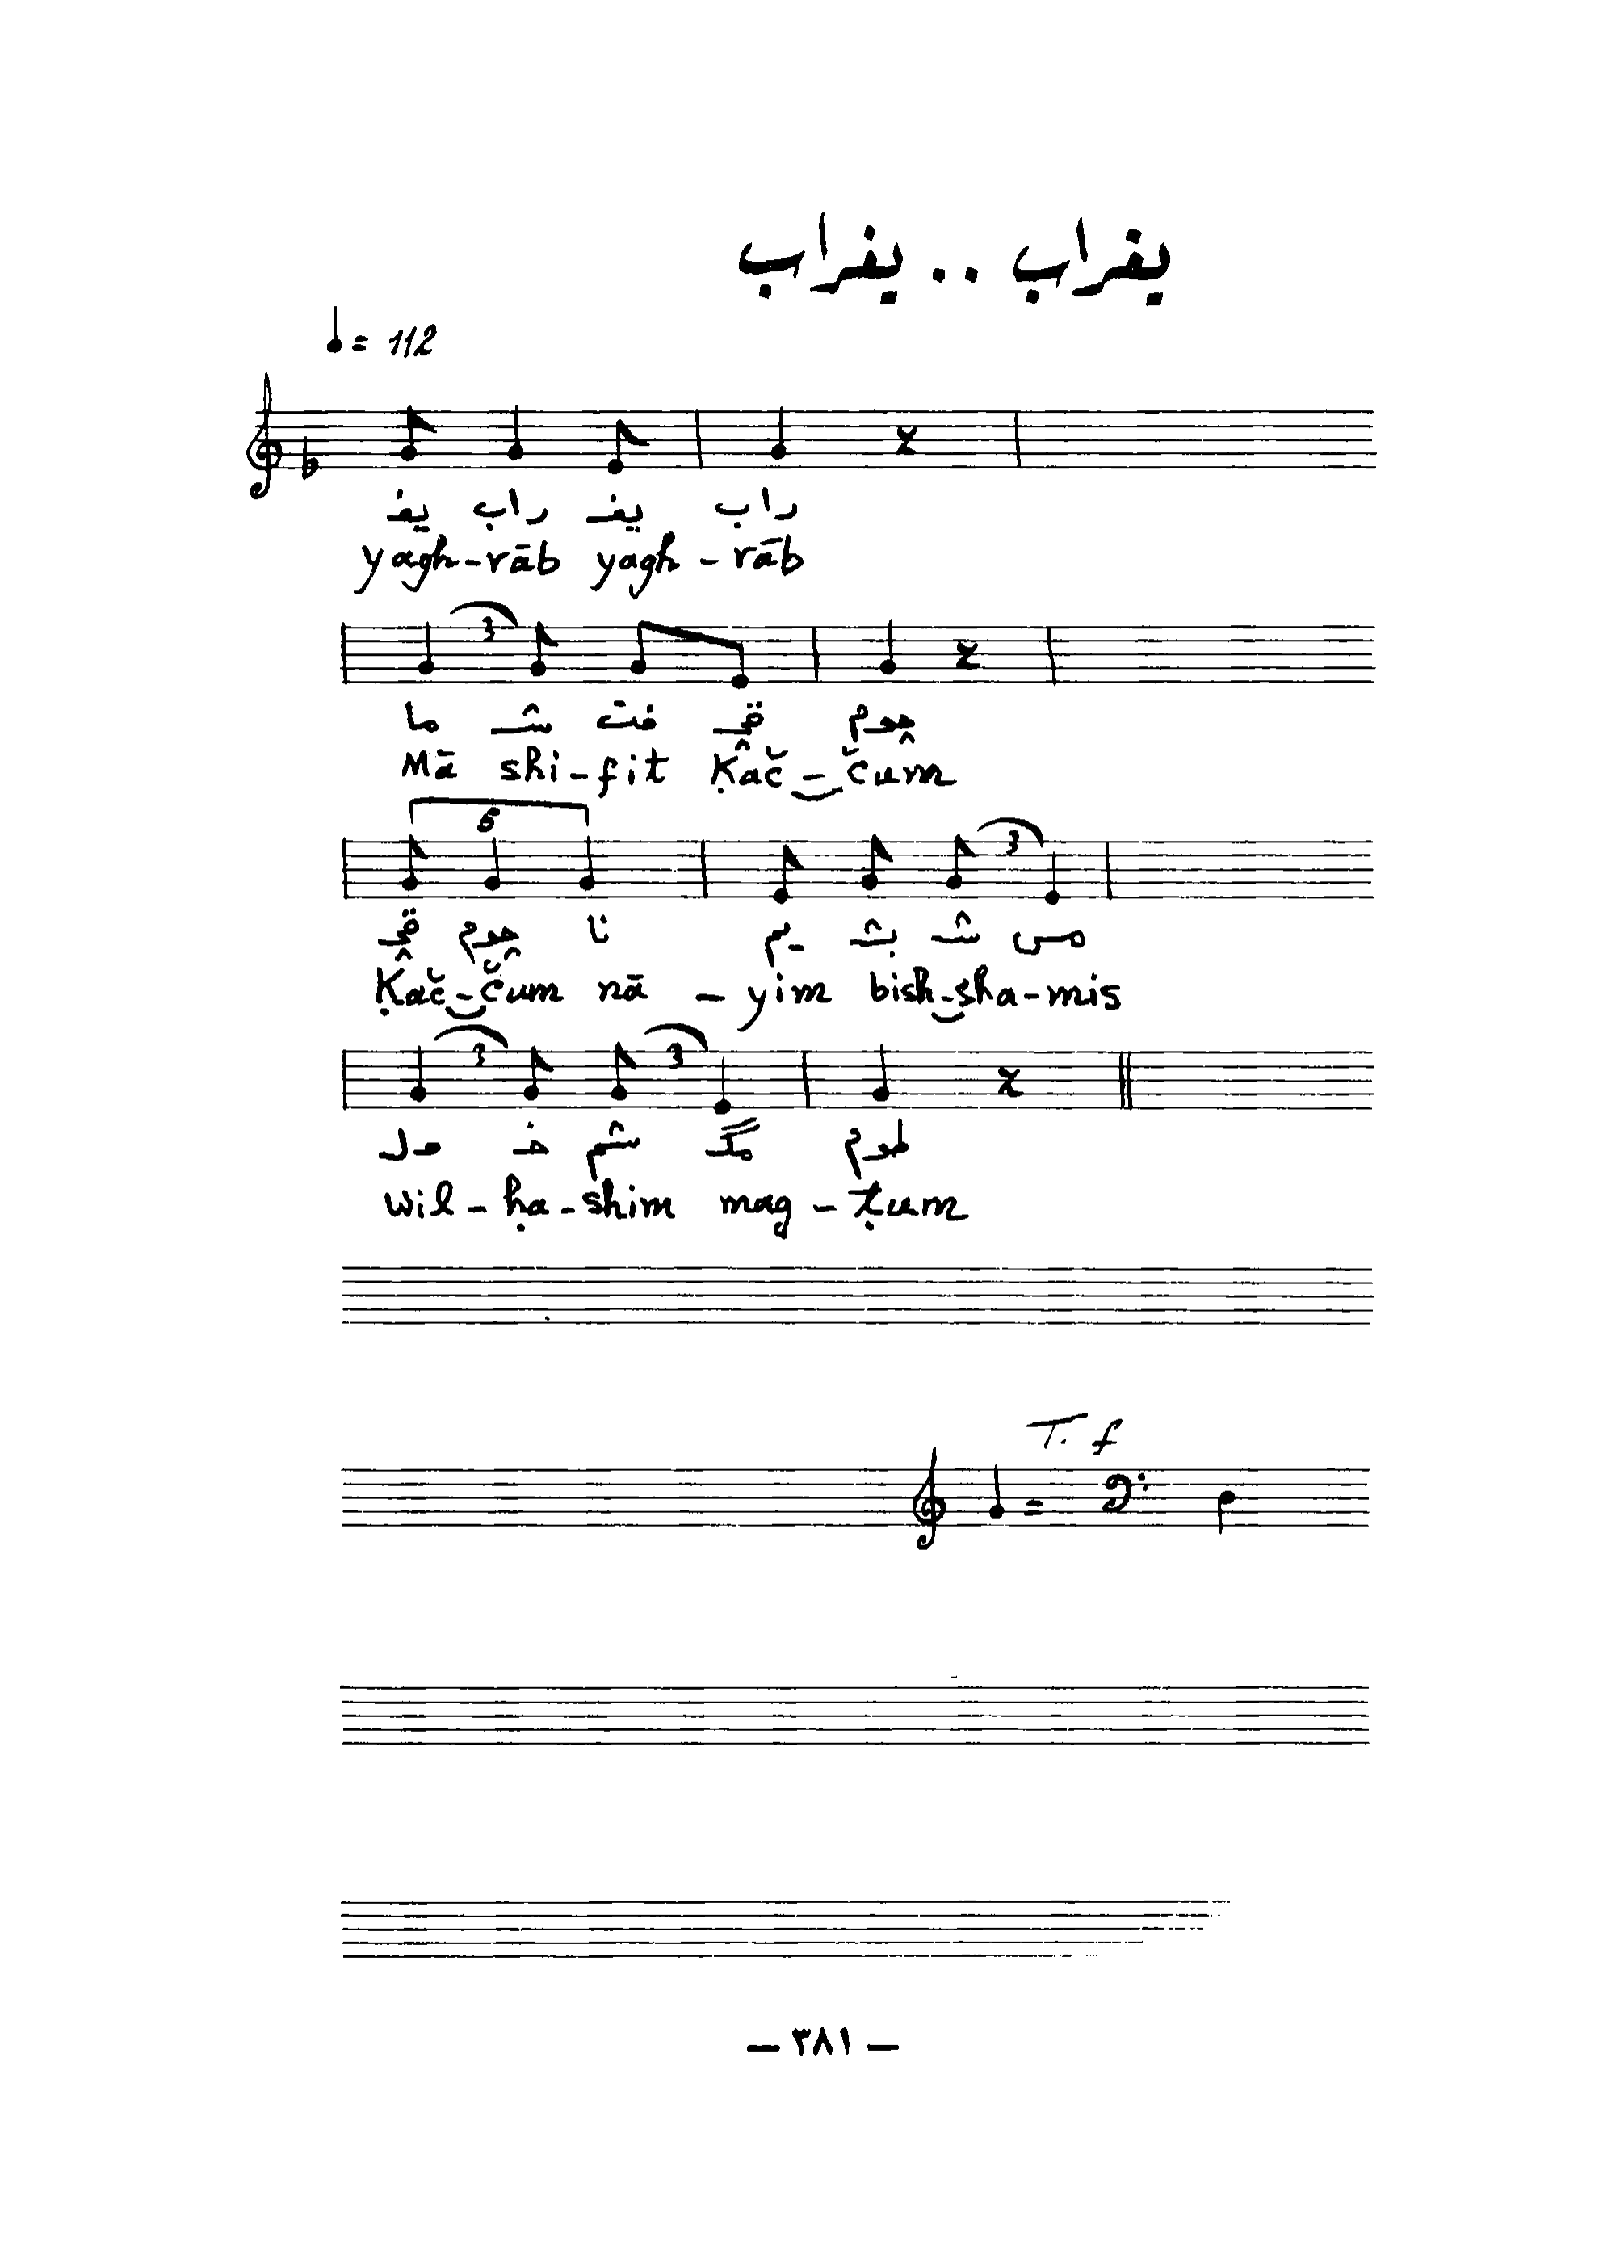 يغراب .. يغراب
= 112
يغـ راب يغـ راب
yagh-rāb yagh-rāb
3
ما شـ فت قچـ چوم
Mā shi-fit Ḳač-čum
5 3
قچـ چوم نا يم بشـ شـ مس
Ḳač-čum nā-yim bish-sha-mis
3 3
ول خـ شم مگـ طوم
wil-ḥa-shim mag-ṭum
T. f
=
– ٣٨١ –